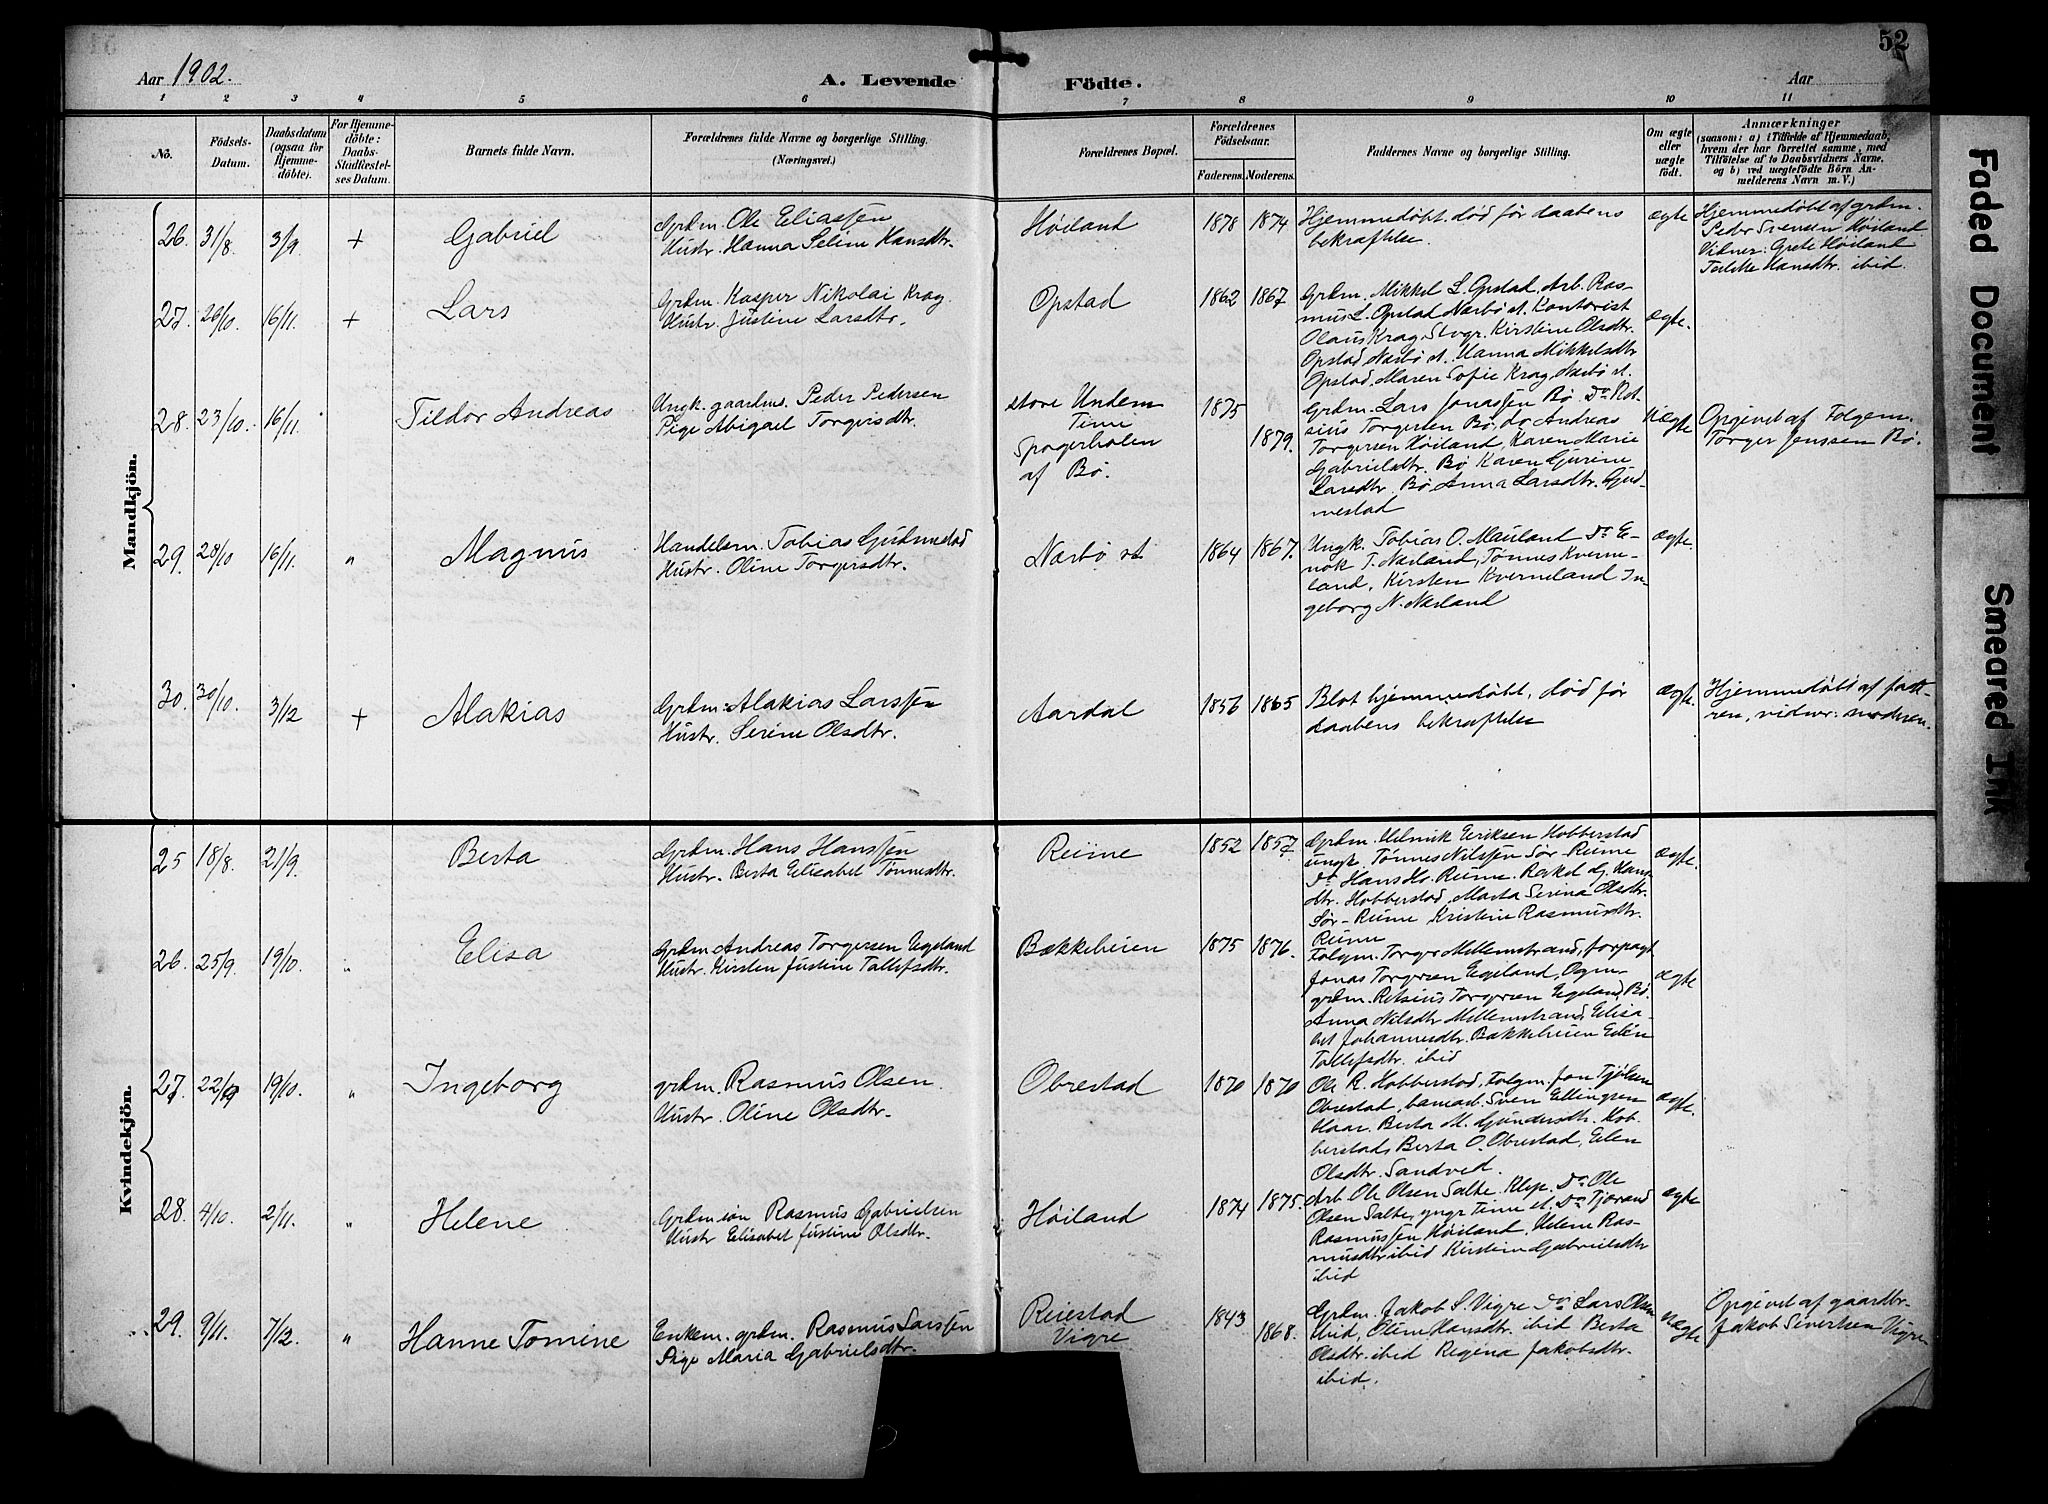 52
Aar 1902.
A. Levende Födte.
Aar
1 2 3 4 5 6 7 8 9 10 11
No.
Födsels-Datum.
Daabsdatum (ogsaa for Hjemme-döbte).
For Hjemme-döbte: Daabs-Stadfæstel-ses Datum.
Barnets fulde Navn.
Forældrenes fulde Navne og borgerlige Stilling.
(Næringsvei.)
Forældrenes Bopæl.
Forældrenes Födselsaar.
Faderens. Moderens.
Faddernes Navne og borgerlige Stilling.
Om ægte eller uægte födt.
Anmærkninger
(saasom: a) i Tilfælde af Hjemmedaab, hvem der har forrettet samme, med Tilföielse af to Daabsvidners Navne. og b) ved uægtefödte Börn An-melderens Navn m. V.)
Mandkjön.
26. 31/8 3/9 + Gabriel
Grdm. Ole Eliassen
Hustr. Hanna Seline Hansdtr.
Høiland 1878 1874
Hjemmedøbt, død før daabens
bekræftelse.
ægte
Hjemmedøbt af grdm.
Peder Svensen Høiland
Vidner: Grete Høiland
Hansdtr. ibid.
27. 26/10 16/11. + Lars
Grdm. Kasper Nikolai Krag
Hustr. Justine Larsdtr.
Opstad 1862 1867
Grdm. Mikkel L. Opstad, Arb. Ras-
mus L. Opstad Nærbø st. Kontorist
Olaus Krag, Stvgr. Kirstine Olsdtr.
Opstad, Nærbø st. Hanna Mikkelsdtr
Opstad, Maren Sofie Krag, Nærbø st.
ægte.
28. 23/10. 16/11. Tildor Andreas
Ungk. gaardms. Peder Pedersen
Pige Abigael Torgersdtr.
store Undem
Time
af Bø.
1875 1879.
Grdm. Lars Jonassen Bø. Do Ret-
sius Torgersen Bø, do Andreas
Torgersen Høiland, Karen Marie
Gabrielsdtr. Bø Karen Gurine
Larsdtr. Bø, Anna Larsdtr. Gud-
mestad
Uægte
Opgivet af Folgem.
Torger Jenssen Bø.
29. 28/10 16/11. " Magnus
Handelsm. Tobias Gudmestad
Hustr. Oline Torgersdtr.
Nærbø st 1864 1867.
Ungk. Tobias O. Mauland Do E-
nok T. Nærland, Tønnes Kverne-
land, Kirsten Kverneland In-
geborg N. Nærland
ægte.
30. 30/10. 3/12 + Malakias
Grdm. Malakias Larssen
Hustr. Serine Olsdtr.
Aardal 1856 1865
Blot hjemmedøbt, død før
daabens bekræftelse
ægte.
Hjemmedøbt af fade-
ren, vidner: moderen.
Kvindekjön.
25 18/8. 21/9. Berta
Grdm. Hans Hanssen
Hustr. Berta Elisabet Tønnesdtr.
Reime 1852 1857
Grdm. Helmik Eriksen Hobberstad
ungk. Tønnes Nilssen Sør-Reime
Do Hans Hs. Reime. Rakel dg. Hans-
dtr. Hobberstad, Marta Serina Olsdtr.
Sør-Reime Kristine Rasmusdtr.
Reime
ægte.
26. 25/9. 19/10. " Elisa
Grdm. Andreas Torgersen Egeland
Hustr. Kirsten Justine Tollefsdtr.
Bækkeheien 1875 1876.
Folgm. Torger Mellemstrand, forpagt
Jonas Torgersen Egeland, Ogm-
grdm. Retsius Torgersen Egeland, Bø.
Anna Nilsdtr Mellemstrand, Elisa-
bet Johannesdtr. Bækkeheien Elen
Tollefsdtr. ibid
ægte
27. 22/9 19/10. " Ingeborg
grdm. Rasmus Olsen.
Hustr. Oline Olsdtr.
Obrestad 1870 1870
Ole R. Hobberstad, Folgm. Jon Tjølsen
Obrestad, Sven Ellingsen
Haar. Berta M. Gundersdtr. Hob-
berstad, Berta O. Obrestad, Elen
Olsdtr. Sandved.
ægte.
28. 4/10. 2/11. " Helene
Grdm.søn Rasmus Gabrielsen
Hustr Elisabet Justine Olsdtr.
Høiland 1874 1875.
Arb. Ole Olsen Salte. Klep. Do Ole
Olsen Salte, yngr Time st. Do Tjorand
Rasmussen Høiland, Helene Ras-
musdtr ibid Kirstine Gabrielsdtr
ibid
ægte
29. 9/11. 7/12. " Hanne Tomine
Enkem. grdm. Rasmus Larssen
Pige Maria Gabrielsdtr.
Reiestad
Vigre
1843 1868.
Grdm. Jakob S. Vigre Do Lars Olsen
ibid, Oline Hansdtr. ibid Berta
Olsdtr. ibid Regina Jakobsdtr.
ibid.
Uægte
Opgivet af gaardbr.
Jakob Sivertsen Vigre
Faded Document
Smeared Ink